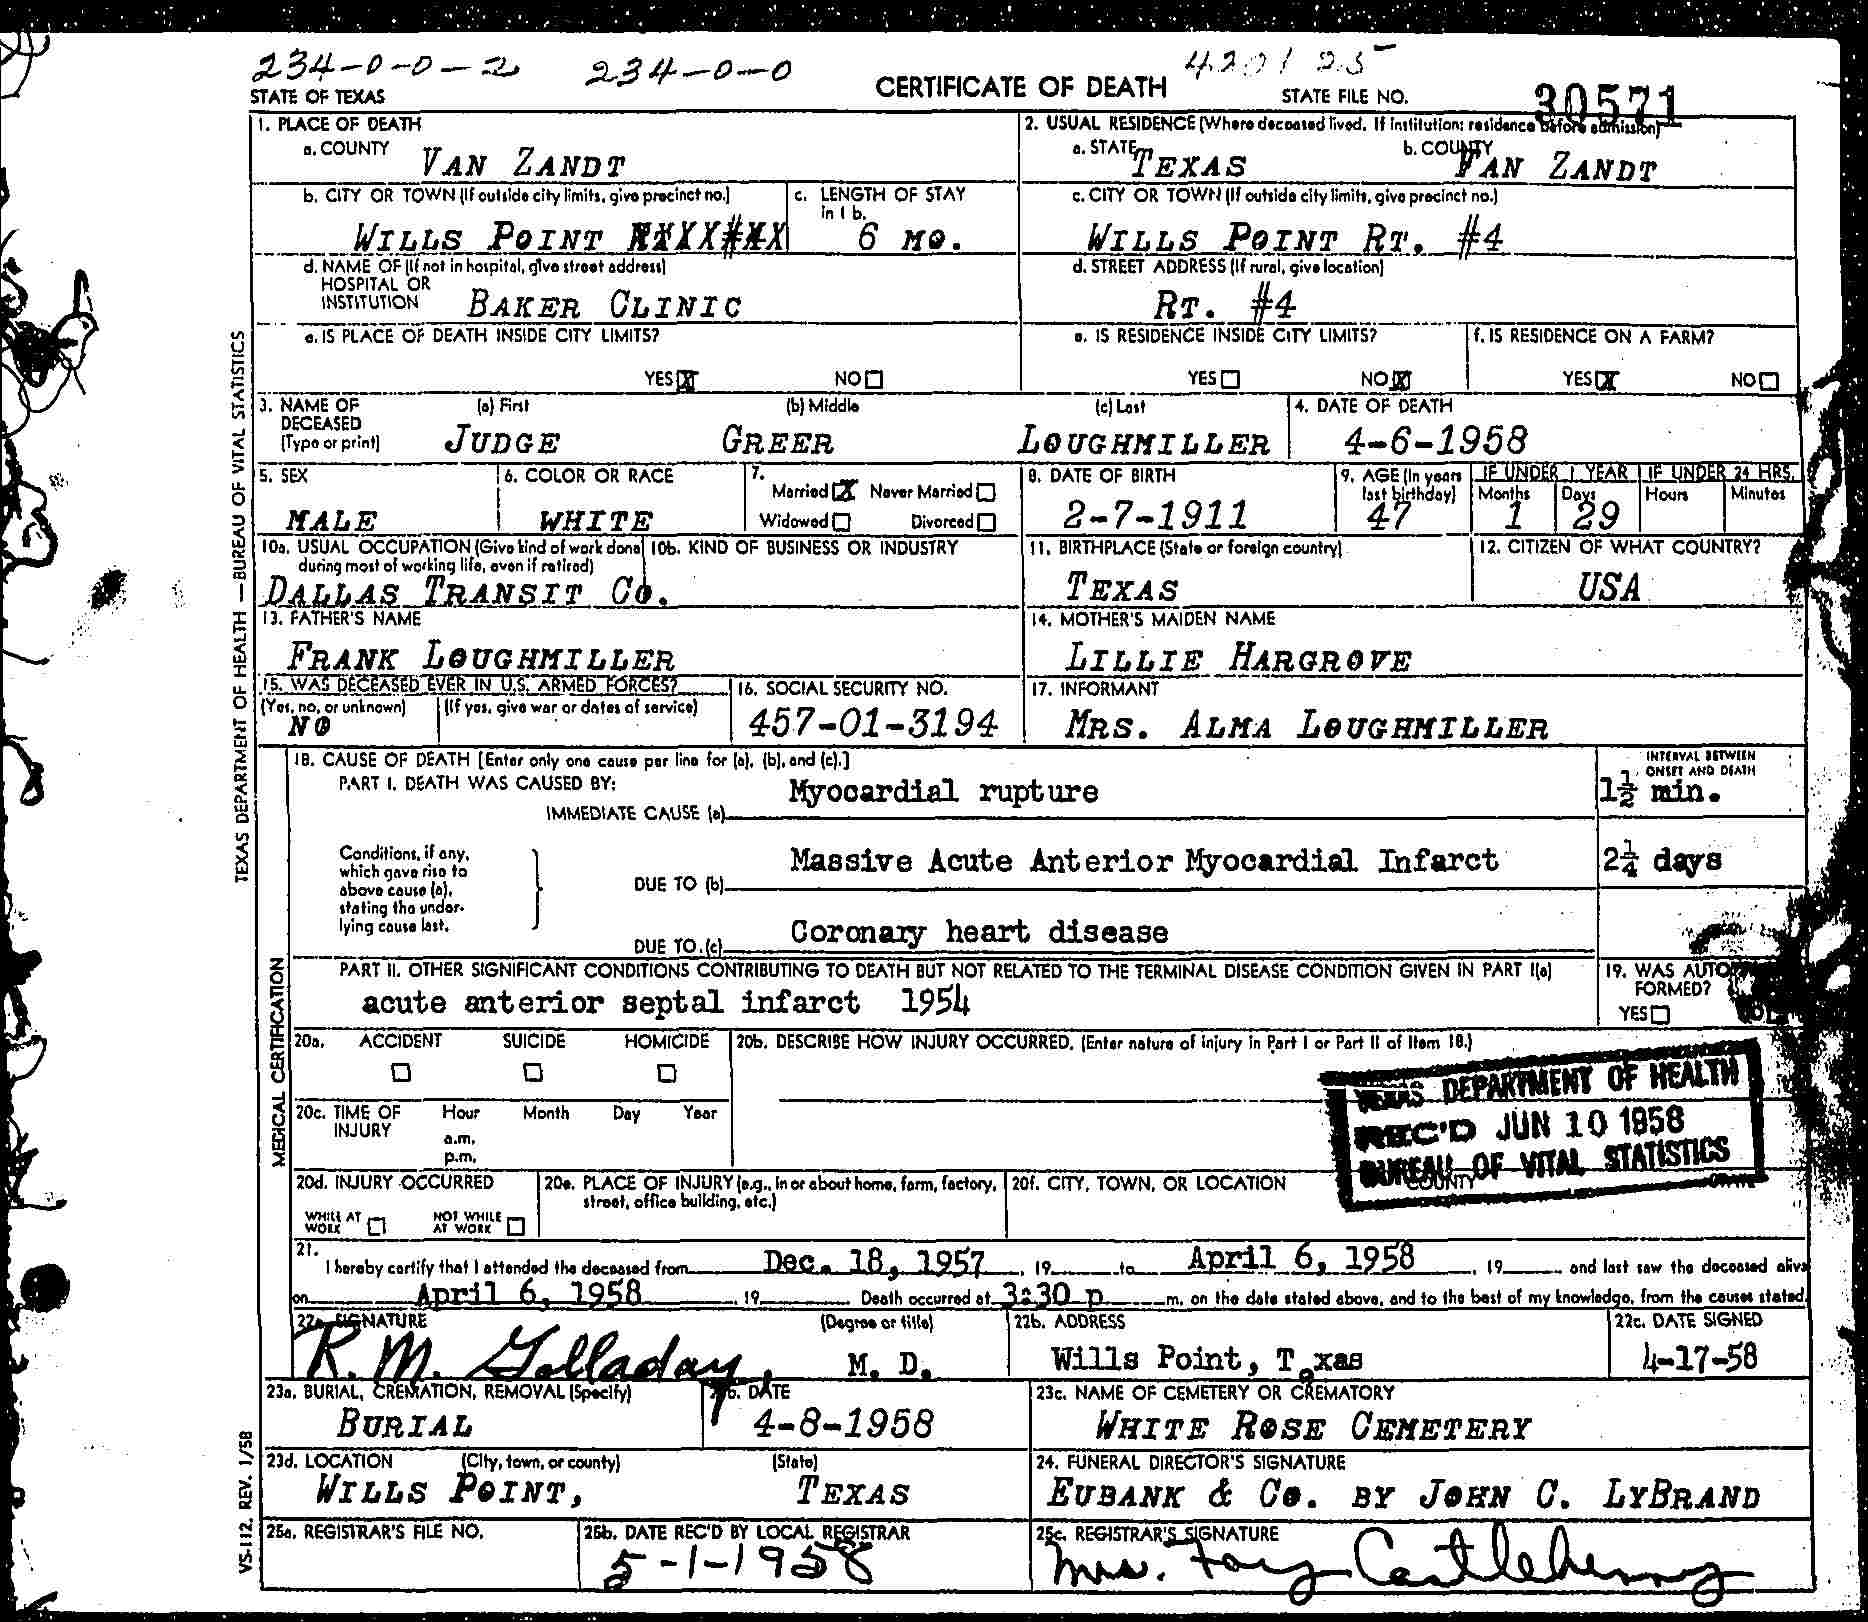 234-0-0-2 234-0-0 4201 25
STATE OF TEXAS CERTIFICATE OF DEATH STATE FILE NO. 30571
1. PLACE OF DEATH
a. COUNTY VAN ZANDT
2. USUAL RESIDENCE (Where deceased lived. If institution: residence before admission)
a. STATE TEXAS b. COUNTY VAN ZANDT
b. CITY OR TOWN (If outside city limits, give precinct no.) WILLS POINT
c. LENGTH OF STAY in 1 b. 6 MO.
c. CITY OR TOWN (If outside city limits, give precinct no.) WILLS POINT RT. #4
d. NAME OF (If not in hospital, give street address)
HOSPITAL OR
INSTITUTION BAKER CLINIC
d. STREET ADDRESS (If rural, give location)
RT. #4
e. IS PLACE OF DEATH INSIDE CITY LIMITS?
YES X NO
e. IS RESIDENCE INSIDE CITY LIMITS?
YES NO X
f. IS RESIDENCE ON A FARM?
YES X NO
3. NAME OF DECEASED (Type or print)
(a) First (b) Middle (c) Last
JUDGE GREER LOUGHMILLER
4. DATE OF DEATH
4-6-1958
5. SEX
MALE
6. COLOR OR RACE
WHITE
7.
Married X Never Married
Widowed Divorced
8. DATE OF BIRTH
2-7-1911
9. AGE (In years last birthday)
47
IF UNDER 1 YEAR IF UNDER 24 HRS.
Months Days Hours Minutes
1 29
10a. USUAL OCCUPATION (Give kind of work done during most of working life, even if retired)
10b. KIND OF BUSINESS OR INDUSTRY
DALLAS TRANSIT CO.
11. BIRTHPLACE (State or foreign country)
TEXAS
12. CITIZEN OF WHAT COUNTRY?
USA
13. FATHER'S NAME
FRANK LOUGHMILLER
14. MOTHER'S MAIDEN NAME
LILLIE HARGROVE
15. WAS DECEASED EVER IN U.S. ARMED FORCES?
(Yes, no, or unknown) (If yes, give war or dates of service)
NO
16. SOCIAL SECURITY NO.
457-01-3194
17. INFORMANT
MRS. ALMA LOUGHMILLER
18. CAUSE OF DEATH [Enter only one cause per line for (a), (b), and (c).]
INTERVAL BETWEEN ONSET AND DEATH
PART I. DEATH WAS CAUSED BY:
IMMEDIATE CAUSE (a) Myocardial rupture 1½ min.
Conditions, if any,
which gave rise to
above cause (a),
stating the under-
lying cause last.
DUE TO (b) Massive Acute Anterior Myocardial Infarct 2¼ days
DUE TO (c) Coronary heart disease
PART II. OTHER SIGNIFICANT CONDITIONS CONTRIBUTING TO DEATH BUT NOT RELATED TO THE TERMINAL DISEASE CONDITION GIVEN IN PART I(a)
acute anterior septal infarct 1954
19. WAS AUTO
FORMED?
YES
20a. ACCIDENT SUICIDE HOMICIDE
20b. DESCRIBE HOW INJURY OCCURRED. (Enter nature of injury in Part I or Part II of Item 18.)
20c. TIME OF INJURY Hour Month Day Year
a.m.
p.m.
TEXAS DEPARTMENT OF HEALTH
REC'D JUN 10 1958
BUREAU OF VITAL STATISTICS
20d. INJURY OCCURRED
WHILE AT WORK NOT WHILE AT WORK
20e. PLACE OF INJURY (e.g., in or about home, farm, factory, street, office building, etc.)
20f. CITY, TOWN, OR LOCATION COUNTY STATE
21.
I hereby certify that I attended the deceased from Dec. 18, 1957, 19 to April 6, 1958, 19 and last saw the deceased alive
on April 6, 1958, 19 Death occurred at 3:30 p m, on the date stated above, and to the best of my knowledge, from the causes stated.
22a. SIGNATURE (Degree or title)
R. M. Golladay, M. D.
22b. ADDRESS
Wills Point, Texas
22c. DATE SIGNED
4-17-58
23a. BURIAL, CREMATION, REMOVAL (Specify)
BURIAL
23b. DATE
4-8-1958
23c. NAME OF CEMETERY OR CREMATORY
WHITE ROSE CEMETERY
23d. LOCATION (City, town, or county) (State)
WILLS POINT, TEXAS
24. FUNERAL DIRECTOR'S SIGNATURE
EUBANK & CO. BY JOHN C. LYBRAND
25a. REGISTRAR'S FILE NO.
25b. DATE REC'D BY LOCAL REGISTRAR
5-1-1958
25c. REGISTRAR'S SIGNATURE
Mrs. Fay Castleberry
TEXAS DEPARTMENT OF HEALTH — BUREAU OF VITAL STATISTICS
MEDICAL CERTIFICATION
VS-112 REV. 1/58